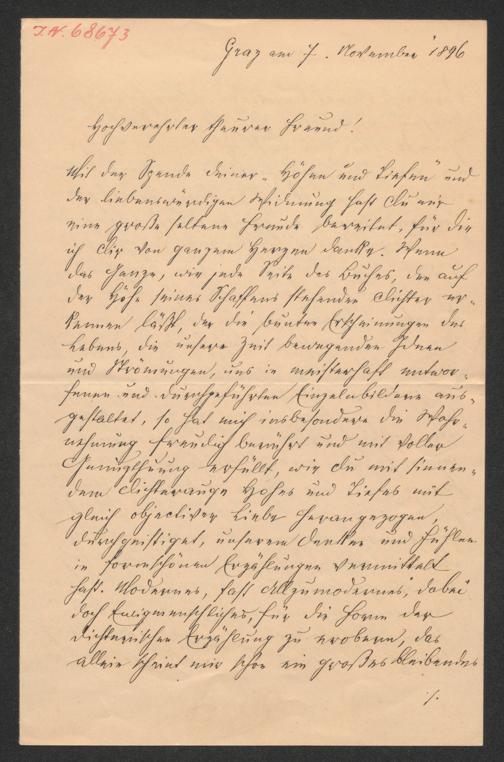 J.N. 68673
Graz am 7. November 1896
Hochverehrter theurer Freund!
Mit der Spende deiner „Höhen und Tiefen" und
der liebenswürdigen Widmung hast Du mir
eine große seltene Freude bereitet, für die
ich Dir von ganzem Herzen danke. Wenn
das Ganze, wie jede Seite des Buches, den auf
der Höhe seines Schaffens stehenden Dichter er-
kennen läßt, der die bunten Erscheinungen des
Lebens, die unsere Zeit bewegenden Ideen
und Strömungen, uns in meisterhaft entwor-
fenen und durchgeführten Einzelnbildern aus-
gestaltet, so hat mich insbesondere die Wahr-
nehmung freudig berührt und mit voller
Genugthuung erfüllt, wie Du mit sinnen-
dem Dichterauge Hohes und Tiefes mit
gleich objectiver Liebe herangezogen,
durchgeistiget, unserem Denken und Fühlen
in formschönen Erzählungen vermittelt
hast. Modernes, fast Allzumodernes, dabei
doch Ewigmenschliches, für die Form der
dichterischen Erzählung zu erobern, das
allein scheint mir schon ein großes bleibendes
./.